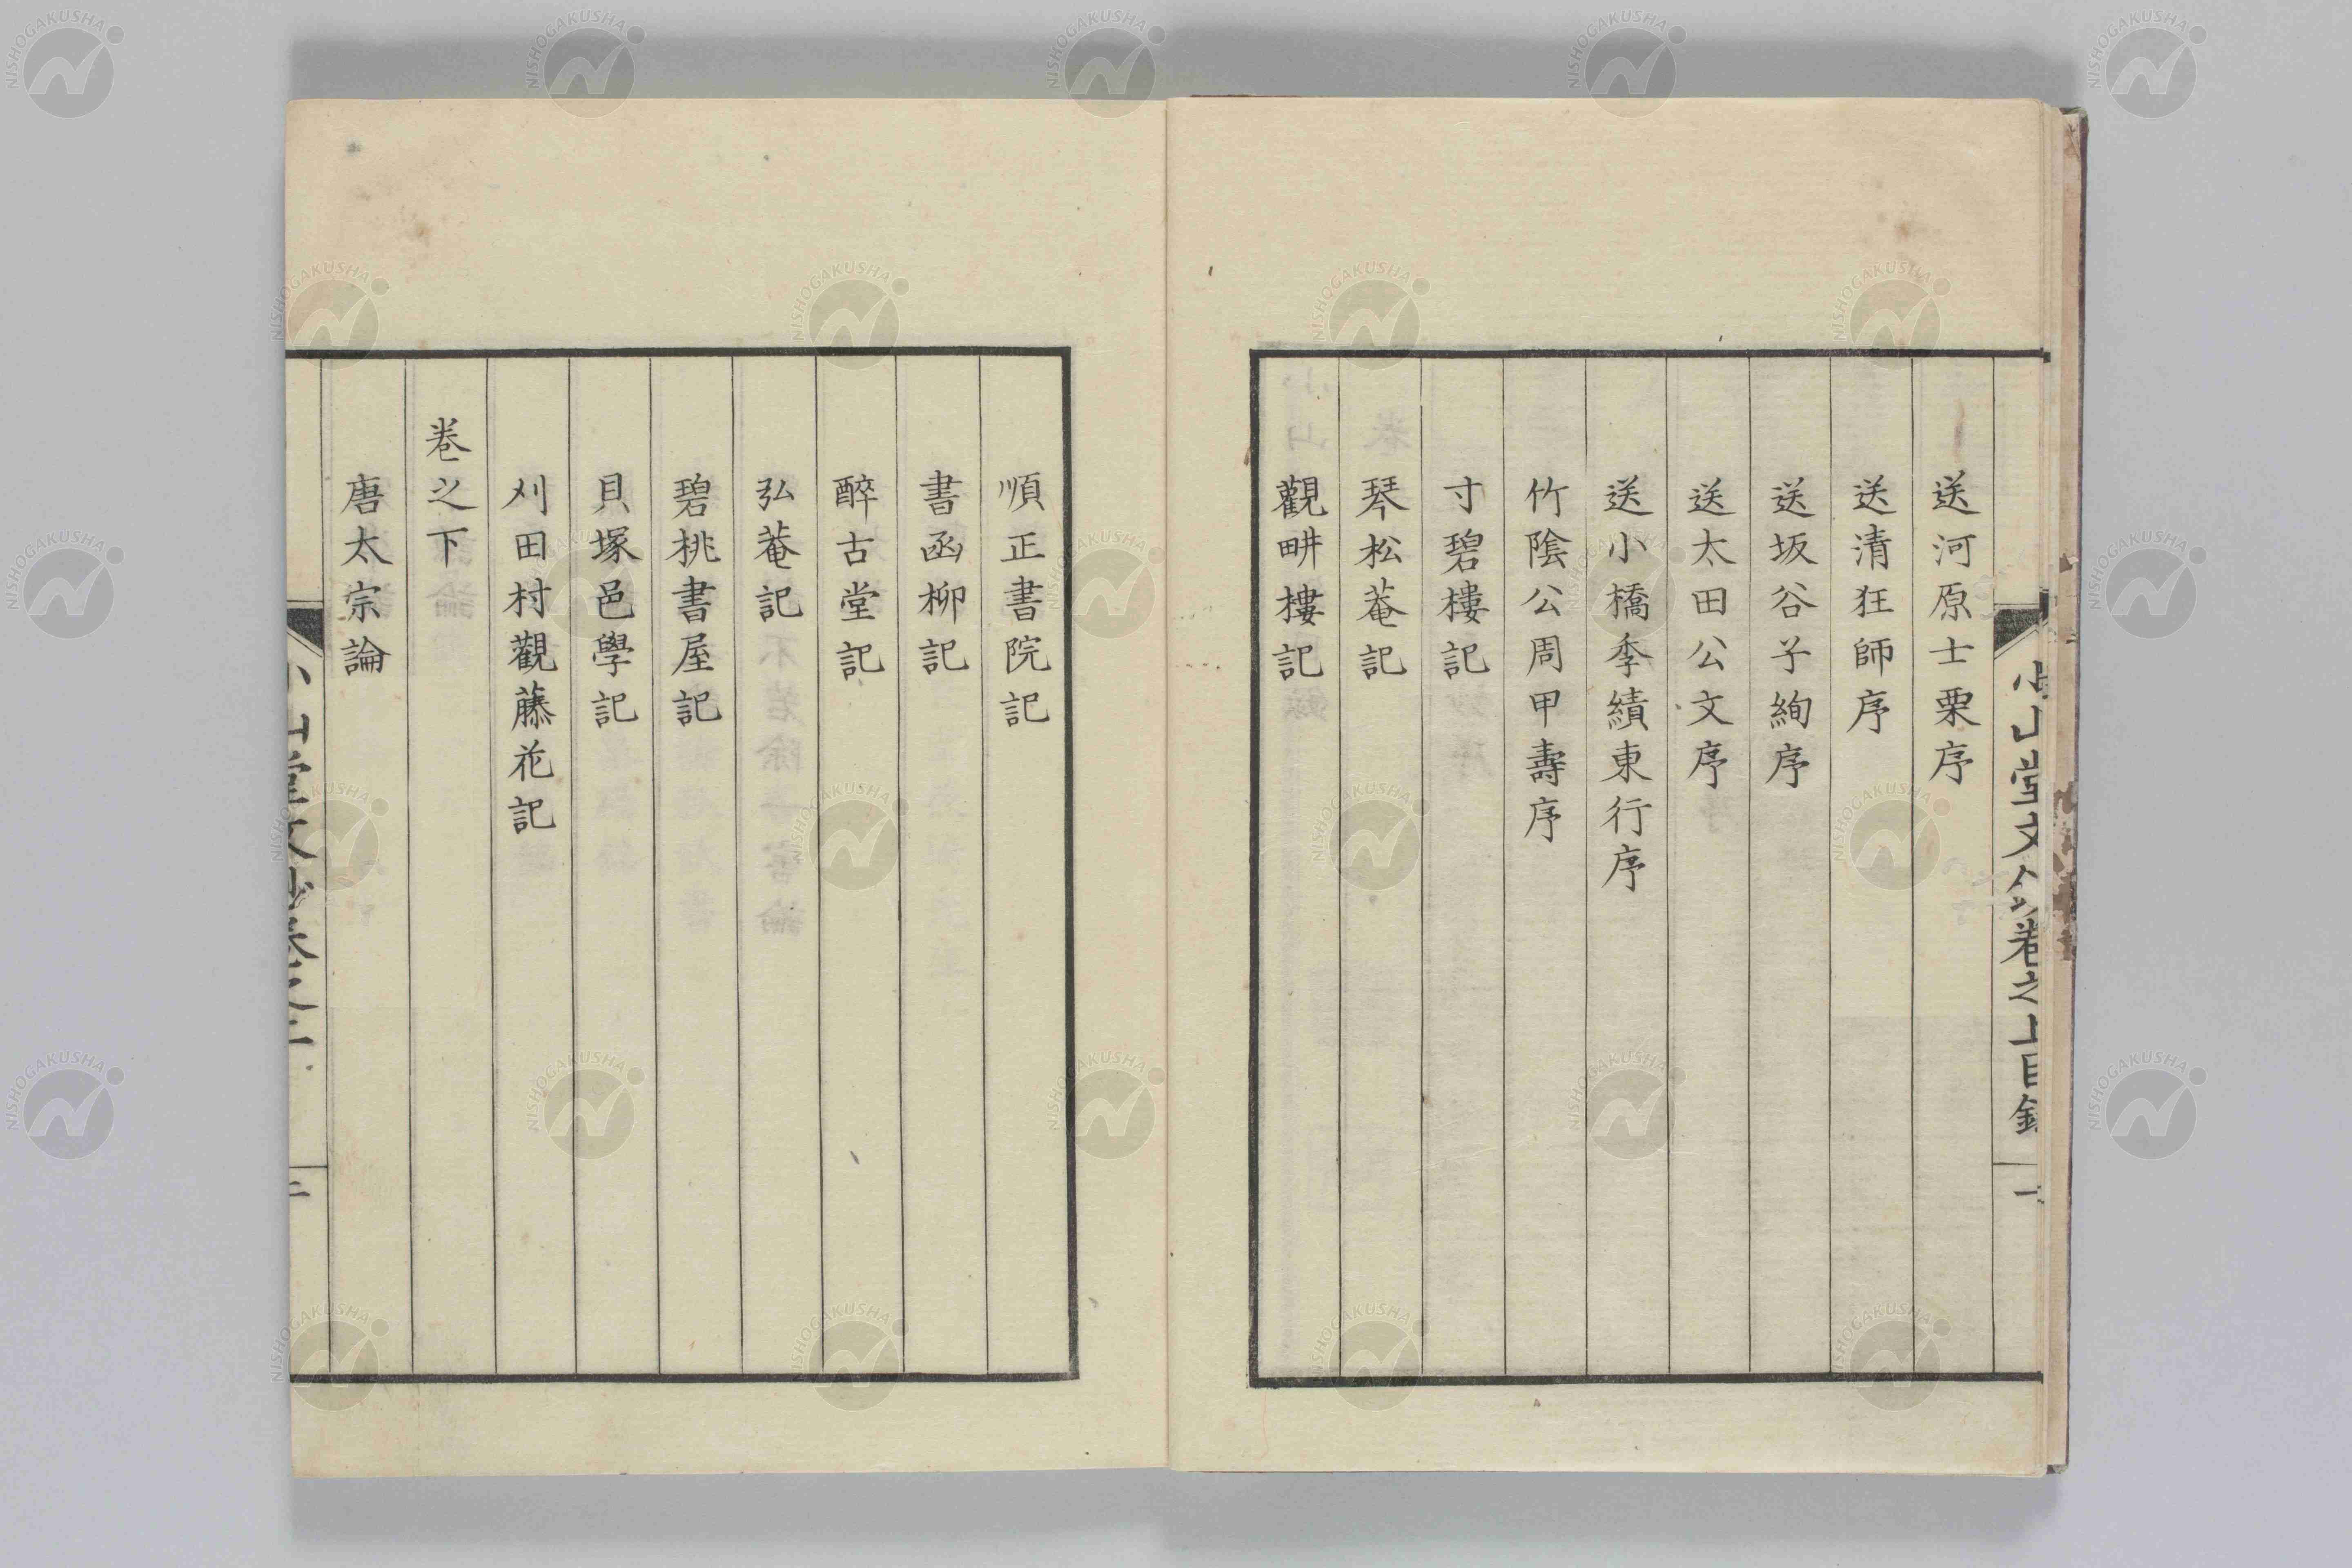 小山堂文鈔卷之上目錄
送河原士栗序
送清狂師序
送坂谷子絢序
送太田公文序
送小橋季績東行序
竹陰公周甲壽序
寸碧樓記
琴松菴記
觀畊樓記
順正書院記
書函柳記
醉古堂記
弘菴記
碧桃書屋記
貝塚邑學記
刈田村觀藤花記
卷之下
唐太宗論
NISHOGAKUSHA